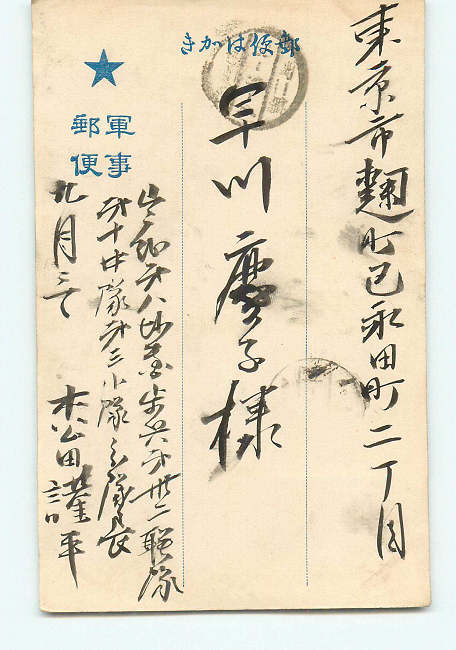 郵便はがき
東京市麹町区永田町二丁目
早川慶子様
軍事
郵便
出征第八師団歩兵第卅二聯隊
第十中隊第三小隊長
九月三
田謹平